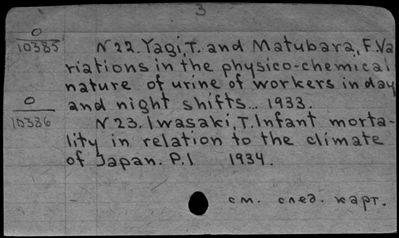 3
O
10385
N 22. Yagi, T. and Matubara, F. Va
riations in the physico-chemical
nature of urine of workers in day
and night shifts... 1933.
O
10386
N 23. Iwasaki, T. Infant morta-
lity in relation to the climate
of Japan. P.I 1934.
см. след. карт.